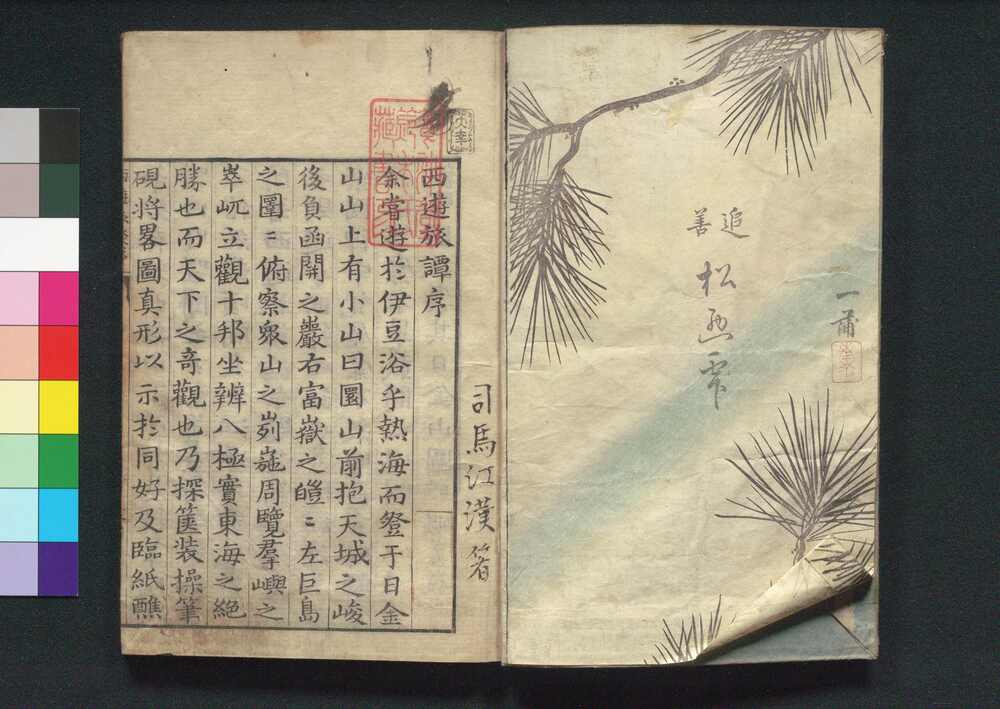 追善
松
一莆
西遊旅譚序
司馬江漢著
余嘗遊於伊豆浴乎熱海而登于日金
山山上有小山曰圓山前抱天城之峻
後負函關之巖右富嶽之皚〻左巨島
之圍〻俯察衆山之峛崺周覽羣嶼之
崒屼立觀十邦坐辨八極實東海之絶
勝也而天下之奇觀也乃探篋裝操筆
硯將畧圖真形以示於同好及臨紙醮